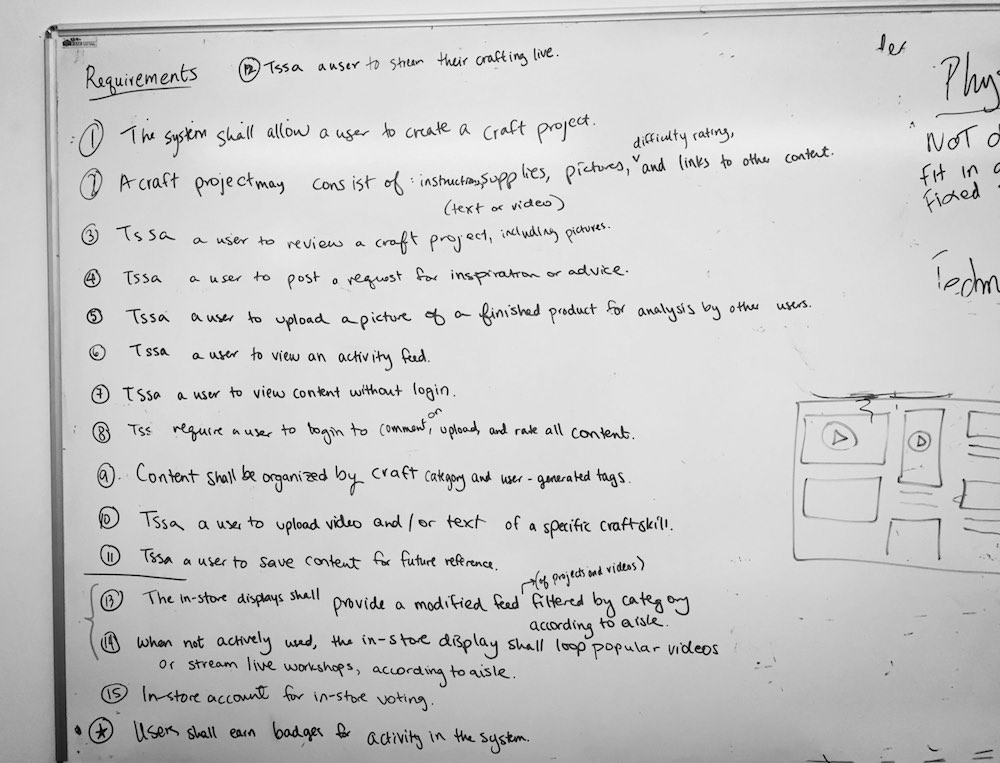 Requirements
⑫ Tssa a user to stream their crafting live.
① The system shall allow a user to create a craft project.
difficulty rating,
② A craft project may consist of: instructions, supplies, pictures, ˅ and links to other content.
(text or video)
③ Tssa a user to review a craft project, including pictures.
④ Tssa a user to post a request for inspiration or advice.
⑤ Tssa a user to upload a picture of a finished product for analysis by other users.
⑥ Tssa a user to view an activity feed.
⑦ Tssa a user to view content without login.
or
⑧ Tss require a user to login to comment, upload, and rate all content.
⑨. Content shall be organized by craft category and user-generated tags.
⑩ Tssa a user to upload video and/or text of a specific craft skill.
⑪ Tssa a user to save content for future reference.
→(of projects and videos)
⑬ The in-store displays shall provide a modified feed filtered by category
according to aisle.
⑭ when not actively used, the in-store display shall loop popular videos
or stream live workshops, according to aisle.
⑮ In-store account for in-store voting.
• ★ Users shall earn badges for activity in the system.
Phy
NOT
fit in
Fixed
Techn